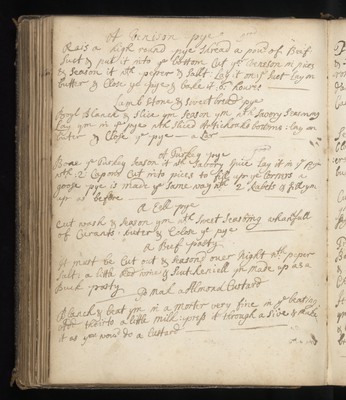 A Venison pye
Rais a high round pye Shread a pound of Beif
Suet & put it into ye bottom Cut yr Venison in pices
& Season it wth peper & Salt Lay it on yr Suet Lay on
butter & Close ye pye & bake it 6 houres
Lamb stone & sweet bread pye
Boyl Blanch & Slice ym Season ym wth Savory Seasning
Lay ym in ye pye wth Sliced Hotichoake bottoms: lay on
butter & Close ye pye — a Lear
A Turkey pye
Bone ye Turkey Season it wth Savory Spice Lay it in ye pye
wth 2 Capons Cut into pices to fill up ye Corners a
goose pye is made ye same way wth 2 Rabits to fill ym
up as before
A Eele pye
Cut wash & Season ym wth Sweet Seasoning a handfull
of Curants: buter & Close ye pye
A Beif pasty
It must be Cut out & Seasond over Night wth peper
Salt: a little Red wine & made up as a
Buck pasty
To Mak a Almond Custard
Blanch & beat ym in a Morter very fine in ye beating
add to a little milk press it through a Sive & make
it as you would do a Custard